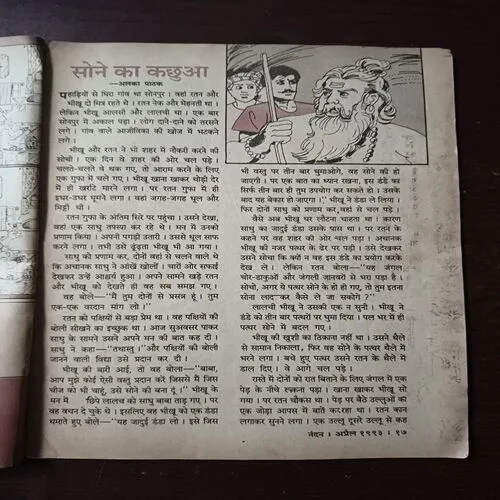 सोने का कछुआ
—अलका पाठक
पहाड़ियों से घिरा गांव था सोनपुर । वहां रतन और
भीखू दो मित्र रहते थे । रतन नेक और मेहनती था ।
लेकिन भीखू आलसी और लालची था । एक बार
सोनपुर में अकाल पड़ा । लोग दाने-दाने को तरसने
लगे । गांव वाले आजीविका की खोज में भटकने
लगे ।
भीखू और रतन ने भी शहर में नौकरी करने की
सोची । एक दिन वे शहर की ओर चल पड़े ।
चलते-चलते वे थक गए, तो आराम करने के लिए
एक गुफा में चले गए । भीखू खाना खाकर थोड़ी देर
में ही खर्राटे मारने लगा । पर रतन गुफा में ही
इधर-उधर घूमने लगा । वहां जगह-जगह धूल और
मिट्टी थी ।
रतन गुफा के अंतिम सिरे पर पहुंचा । उसने देखा,
वहां एक साधु तपस्या कर रहे थे । मन में उनको
प्रणाम किया । अपनी पगड़ी उतारी । उससे धूल साफ
करने लगा । तभी उसे ढूंढ़ता भीखू भी आ गया ।
साधु को प्रणाम कर, दोनों वहां से चलने वाले थे
कि अचानक साधु ने आंखें खोलीं । चारों ओर सफाई
देखकर उन्हें आश्चर्य हुआ । अपने सामने खड़े रतन
और भीखू को देखते ही वह सब समझ गए ।
वह बोले—"मैं तुम दोनों से प्रसन्न हूं । तुम
एक-एक वरदान मांग लो ।"
रतन को पक्षियों से बड़ा प्रेम था । वह पक्षियों की
बोली सीखने का इच्छुक था । आज सुअवसर पाकर
साधु के सामने उसने अपने मन की बात कह दी ।
साधु ने कहा—"तथास्तु ।" और पक्षियों की बोली
जानने वाली विद्या उसे प्रदान कर दी ।
भीखू की बारी आई, तो वह बोला—"बाबा,
आप मुझे कोई ऐसी वस्तु प्रदान करें जिससे मैं जिस
चीज को भी चाहूं, उसे सोने की बना दूं ।" भीखू के
मन में छिपे लालच को साधु बाबा ताड़ गए । पर
वह वचन दे चुके थे । इसलिए वह भीखू को एक डंडा
थमाते हुए बोले—"यह जादुई डंडा लो । इसे जिस
भी वस्तु पर तीन बार घुमाओगे, वह सोने की हो
जाएगी । पर एक बात का ध्यान रखना, इस डंडे का
सिर्फ तीन बार ही तुम उपयोग कर सकते हो । उसके
बाद यह बेकार हो जाएगा ।" भीखू ने डंडा ले लिया ।
फिर दोनों साधु को प्रणाम कर, वहां से चल पड़े ।
वैसे अब भीखू घर लौटना चाहता था । कारण
साधु का जादुई डंडा उसके पास था । पर रतन के
कहने पर वह शहर की ओर चल पड़ा । अचानक
भीखू की नजर पत्थर के ढेर पर पड़ी । उसे देखकर
उसने सोचा कि क्यों न वह इस डंडे का प्रयोग करके
देख ले । लेकिन रतन बोला—"यह जंगल
चोर-डाकुओं और जंगली जानवरों से भरा पड़ा है ।
सोचो, अगर ये पत्थर सोने के हो गए, तो तुम इतना
सोना लादकर कैसे ले जा सकोगे ?"
लालची भीखू ने उसकी एक न सुनी । भीखू ने
डंडे को तीन बार पत्थरों पर घुमा दिया । पल भर में ही
पत्थर सोने में बदल गए ।
भीखू की खुशी का ठिकाना नहीं था । उसने थैले
से सामान निकाला, फिर वह सोने के पत्थर थैले में
भरने लगा । बाकी बचे हुए पत्थर उसने रतन के थैले में
डाल दिए । वे आगे चल पड़े ।
रास्ते में दोनों को रात बिताने के लिए जंगल में एक
पेड़ के नीचे रुकना पड़ा । खाना खाकर भीखू सो
गया । पर रतन चौकस था । पेड़ पर बैठे उल्लुओं का
एक जोड़ा आपस में बातें कर रहा था । रतन कान
लगाकर सुनने लगा । एक उल्लू दूसरे उल्लू से कह
नंदन । अप्रैल १९९३ । १७